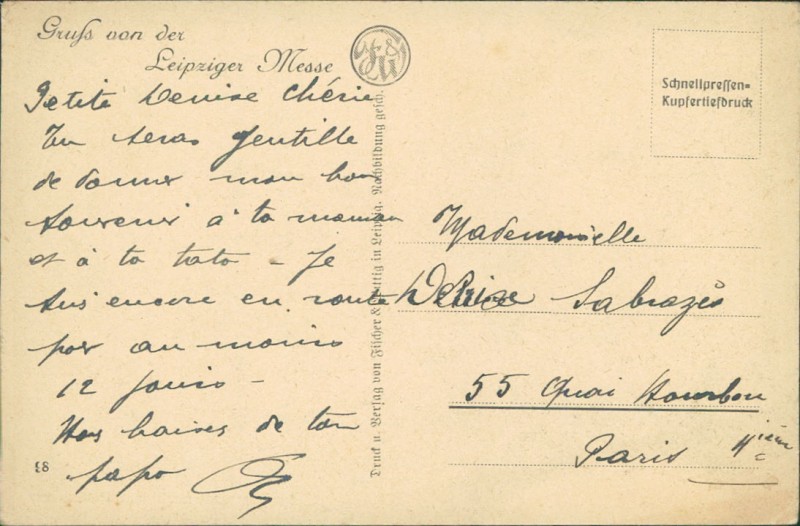 Gruß von der
Leipziger Messe
Schnellpressen=
Kupfertiefdruck
Petite Denise Chérie
Tu seras gentille
de donner mon bon
souvenir à ta maman
et à ta tata - Je
suis encore en route
pour au moins
12 jours -
baises de ton
papo
Mademoiselle
Denise Sabrazès
55 Quai Bourbon
Paris 4ième
Druck u. Verlag von Fischer & Wittig in Leipzig. Nachbildung gesch.
98